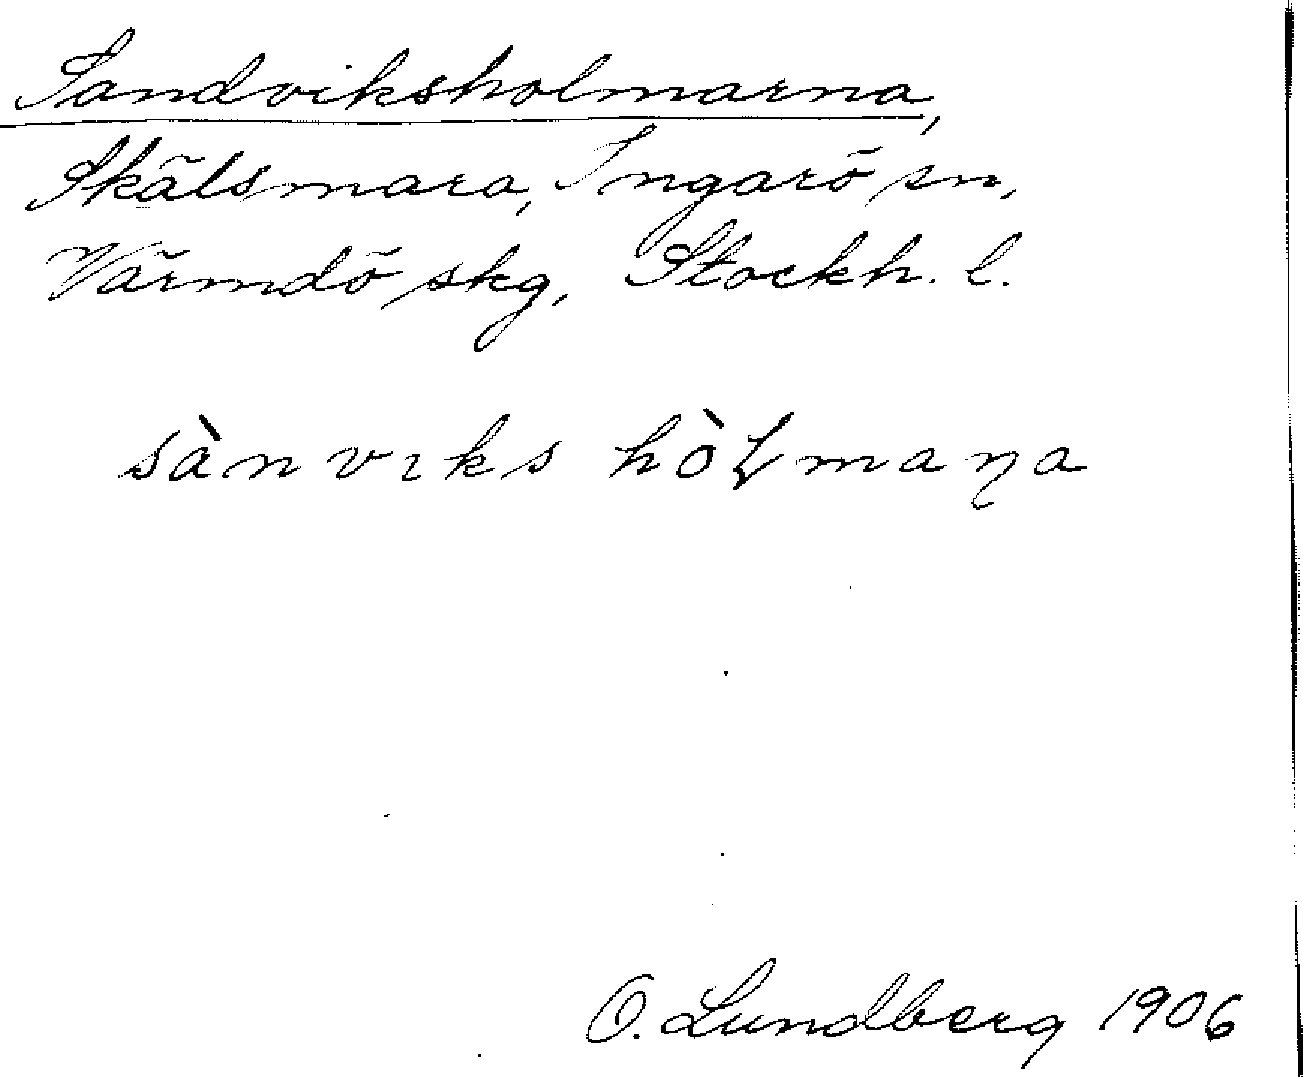 Sandviksholmarna,
Skälsmara, Ingarö sn,
Värmdö skg, Stockh. l.
sànvıks hòɭmaꞃa
O. Lundberg 1906